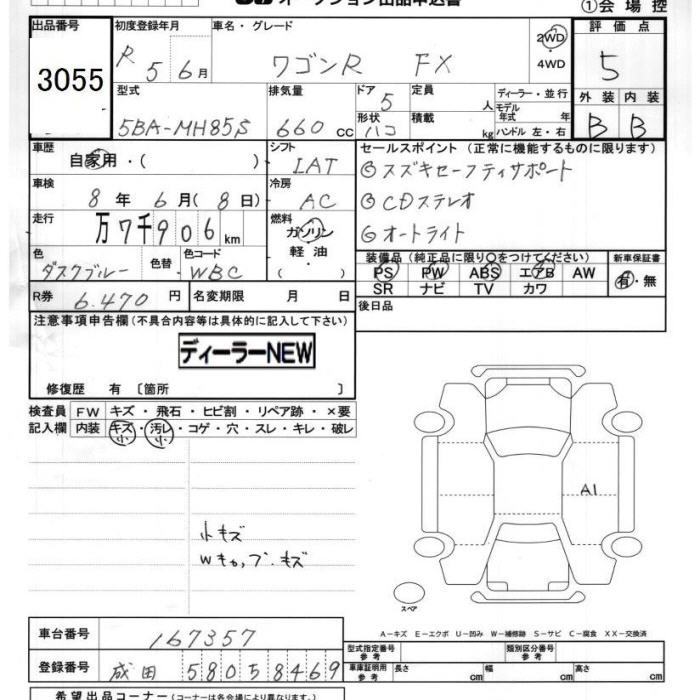 オークション出品申込書
①会場控
出品番号
3055
初度登録年月
R 5 6月
車名・グレード
ワゴンR FX
2WD
・
4WD
評価点
5
型式
5BA-MH85S
排気量
660 cc
ドア
5
形状
ハコ
定員
人
積載
kg
ディーラー・並行
モデル年式 年
ハンドル 左・右
外装 内装
B B
車歴
自家用・( )
シフト
IAT
セールスポイント (正常に機能するものに限ります)
◎スズキセーフティサポート
◎CDステレオ
◎オートライト
車検
8年 6月(8日)
冷房
AC
走行
万7千906km
燃料
ガソリン
軽油
( )
色
ダスクブルー
色替
色コード
WBC
装備品 (純正品に限り○をつけてください)
PS PW ABS エアB AW
SR ナビ TV カワ
新車保証書
有・無
R券 6.470 円
名変期限 月 日
後日品
注意事項申告欄 (不具合内容等は具体的に記入して下さい)
ディーラーNEW
修復歴 有 〔箇所 〕
検査員 FW キズ・飛石・ヒビ割・リペア跡・×要
記入欄 内装 キズ・汚レ・コゲ・穴・スレ・キレ・破レ
小 小
A1
小キズ
Wキャップキズ
スペア
A-キズ E-エクボ U-凹み W-補修跡 S-サビ C-腐食 XX-交換済
車台番号 167357
型式指定番号 参考
類別区分番号 参考
登録番号 成田 580 5 8469
車庫証明用 参考 長さ cm 幅 cm 高さ cm
希望出品コーナー (コーナーは各会場により異なります。)